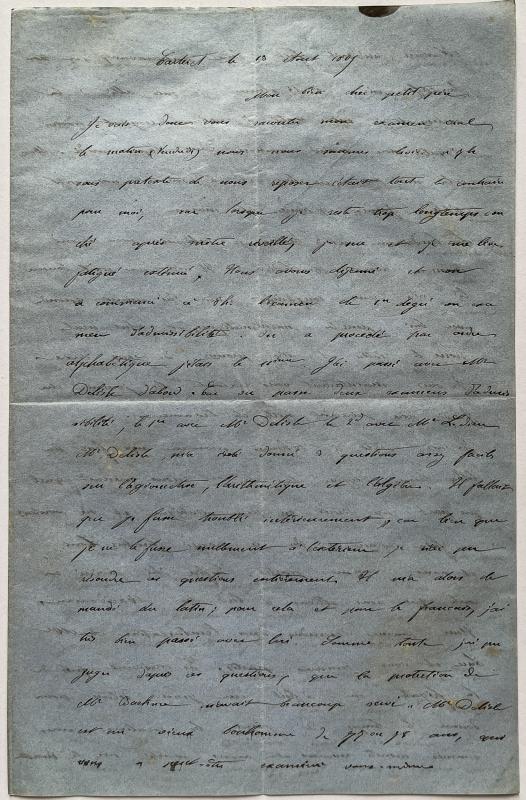 Carteret le 13 Aout 18
Mon bien cher petit père
Je vais donc vous raconter mon examen oral,
le matin (Vendredi) nous nous sommes levés à 7 h
sous prétexte de nous reposer c'était tout le contraire
pour moi, car lorsque je reste trop longtemps cou
ché après mon réveil, je me et je me lève
fatigué . Nous avons déjeuné et on
a commencé à 8h. l'examen du 1er degré ou exa
men d'admissibilité. On a procédé par ordre
alphabétique j'étais le . J'ai passé avec Mr
Delisle d'abord. On passe deux examens d'admis
sibilité, le 1er avec Mr Delisle le 2d avec Mr
Mr Delisle m'a donné 3 questions assez faciles
sur la géométrie, l'arithmétique et l'algèbre. Il fallait
que je fusse troublé intérieurement, car bien que
je ne le fusse nullement à l'extérieur je n'ai pu
résoudre ces questions entièrement. Il m'a alors de
mandé du latin; pour cela et pour le français, j'ai
très bien passé avec lui. Somme toute j'ai pu
juger d'après ces questions, que la protection de
Mr m'avait beaucoup servi. Mr Delisle
est un vieux bonhomme de 77 ou 78 ans, qui
vous a peut-être examiné vous-même